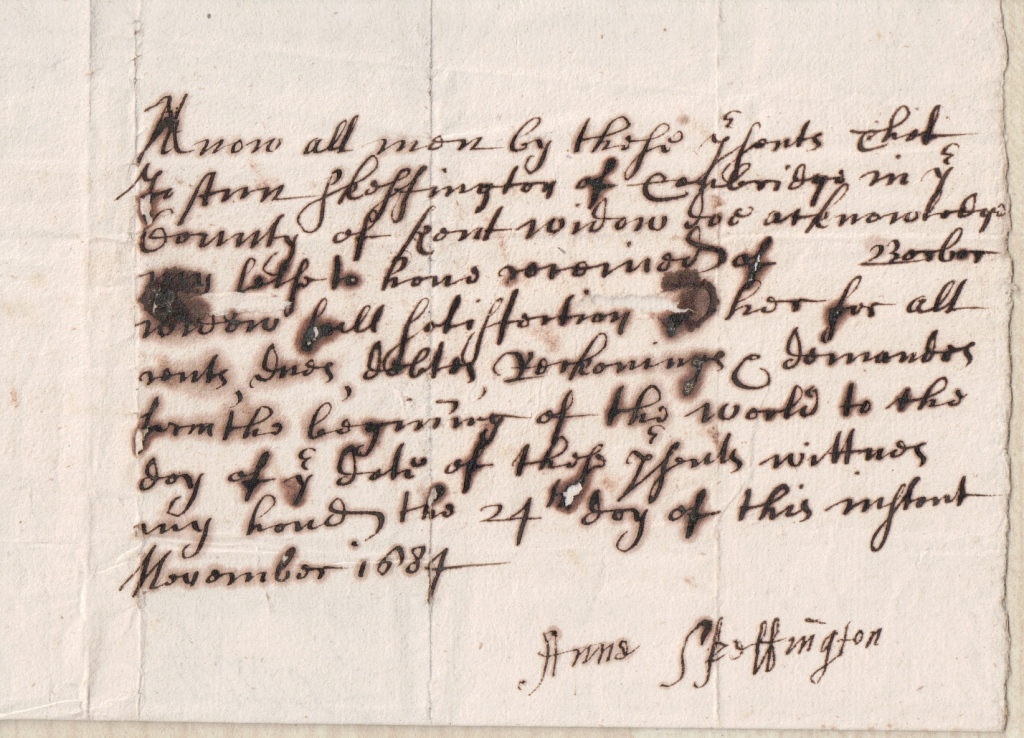 Know all men by these p̃sents that
I Ann Skeffington of Tonbridge in yͤ
County of Kent widow doe acknowledge
my selfe to have received of Berber
widow full satisfaction her for all
rents, dues, debtes, Reckonings & demandes
form the begining of the world to the
day of yͤ date of these p̃sents wittnes
my hand the 24th day of this instant
November 1684
Anne Skeffington